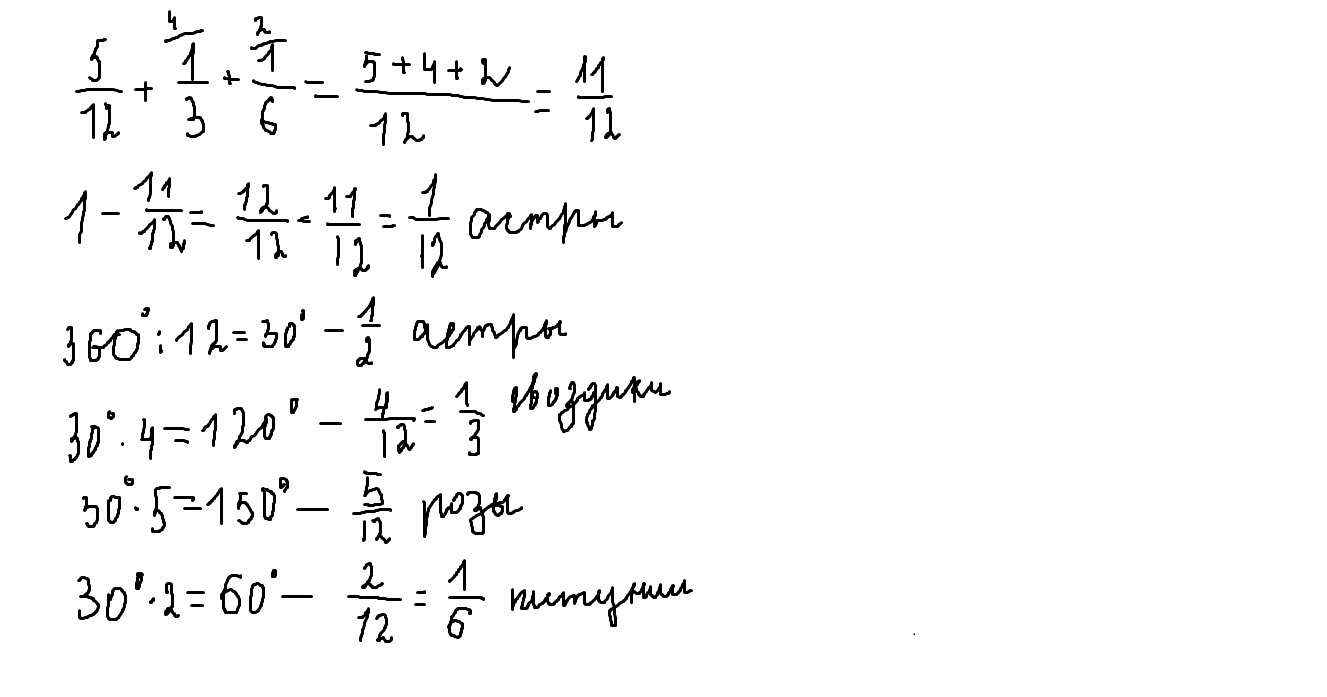 5/12 + 1/3 (4) + 1/6 (2) = (5+4+2)/12 = 11/12
1 - 11/12 = 12/12 - 11/12 = 1/12 астры
360° : 12 = 30° - 1/2 астры
30° · 4 = 120° - 4/12 = 1/3 гвоздики
30° · 5 = 150° - 5/12 розы
30° · 2 = 60° - 2/12 = 1/6 питунии